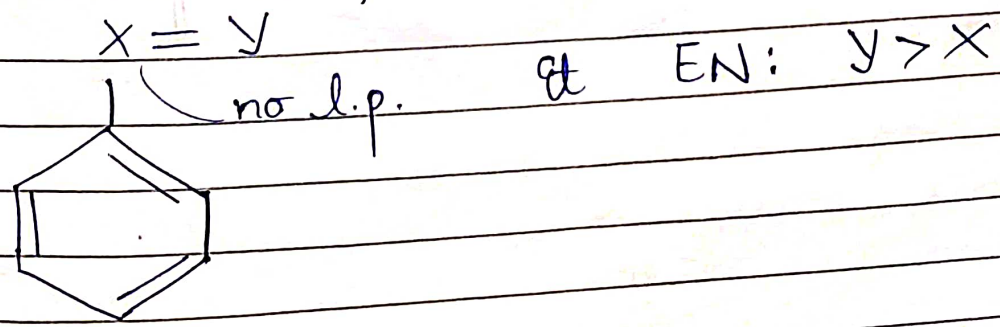 X = Y
no l.p. & EN: Y > X